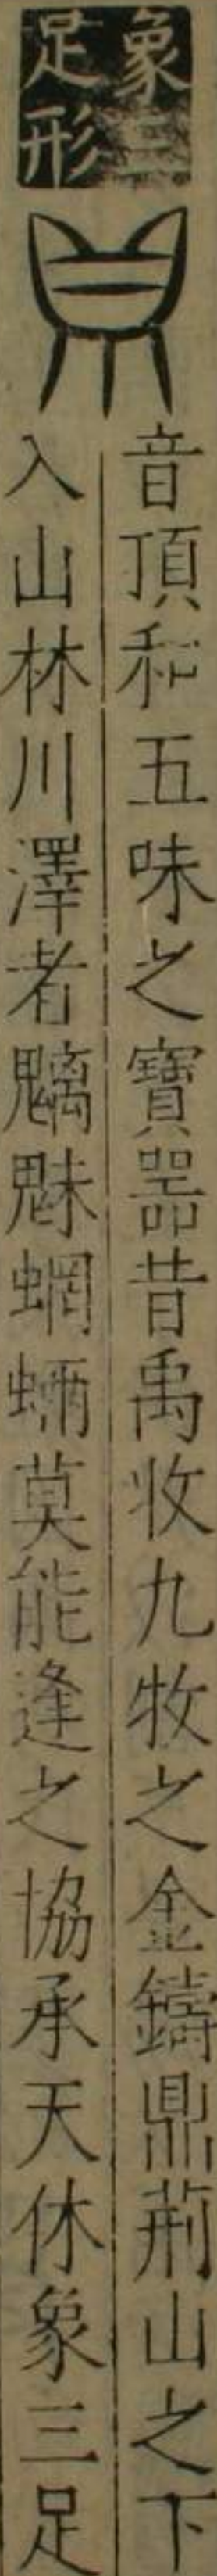 象三
足形
音頂和五味之寶器昔禹收九牧之金鑄鼎荊山之下
入山林川澤者魑魅蝄蜽莫能逢之協承天休象三足